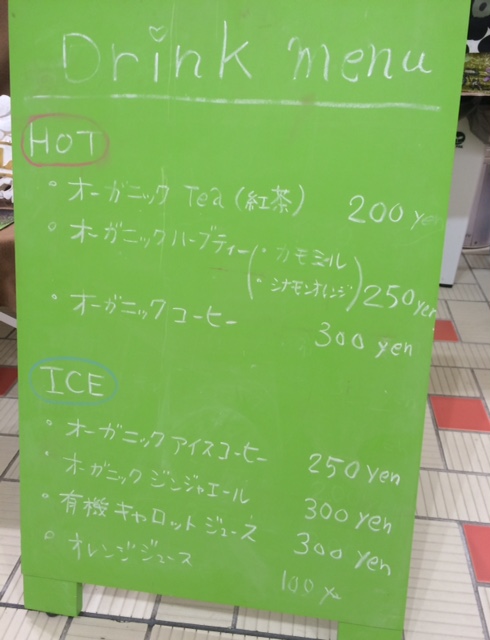 Drink menu
HOT
・オーガニック Tea (紅茶) 200 yen
・オーガニックハーブティー (・カモミール
・シナモンオレンジ) 250 yen
・オーガニックコーヒー 300 yen
ICE
・オーガニックアイスコーヒー 250 yen
・オーガニックジンジャエール 300 yen
・有機キャロットジュース 300 yen
・オレンジジュース 100 y